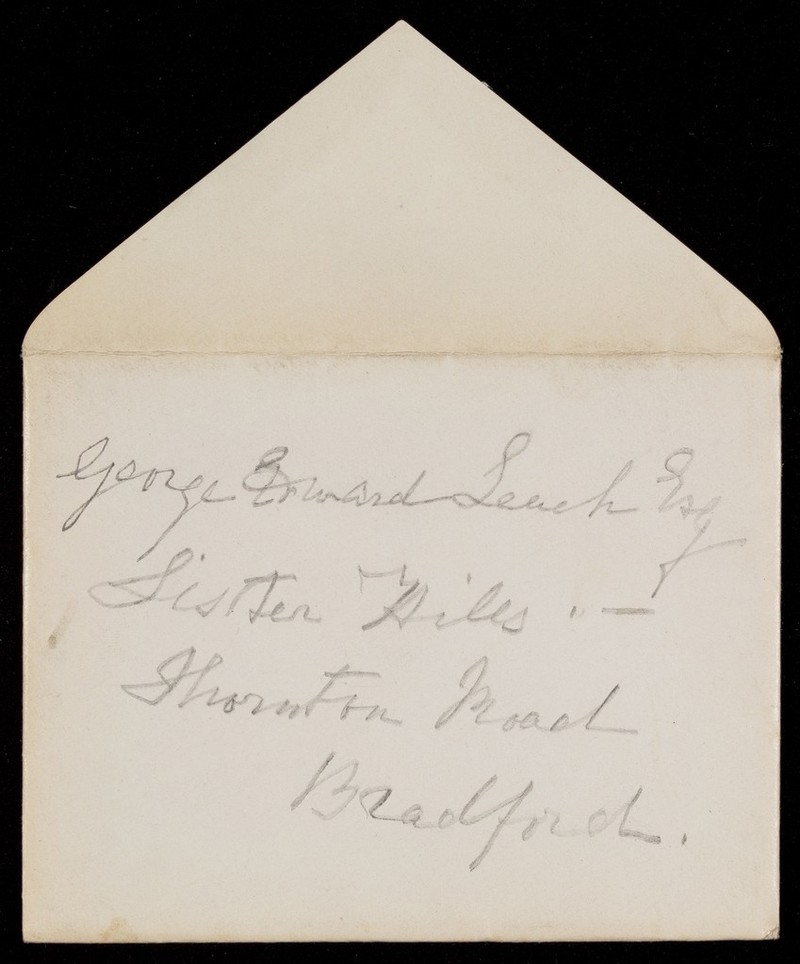 George Edward Leach Esq
Sister Hills . —
Thornton Road
Bradford.